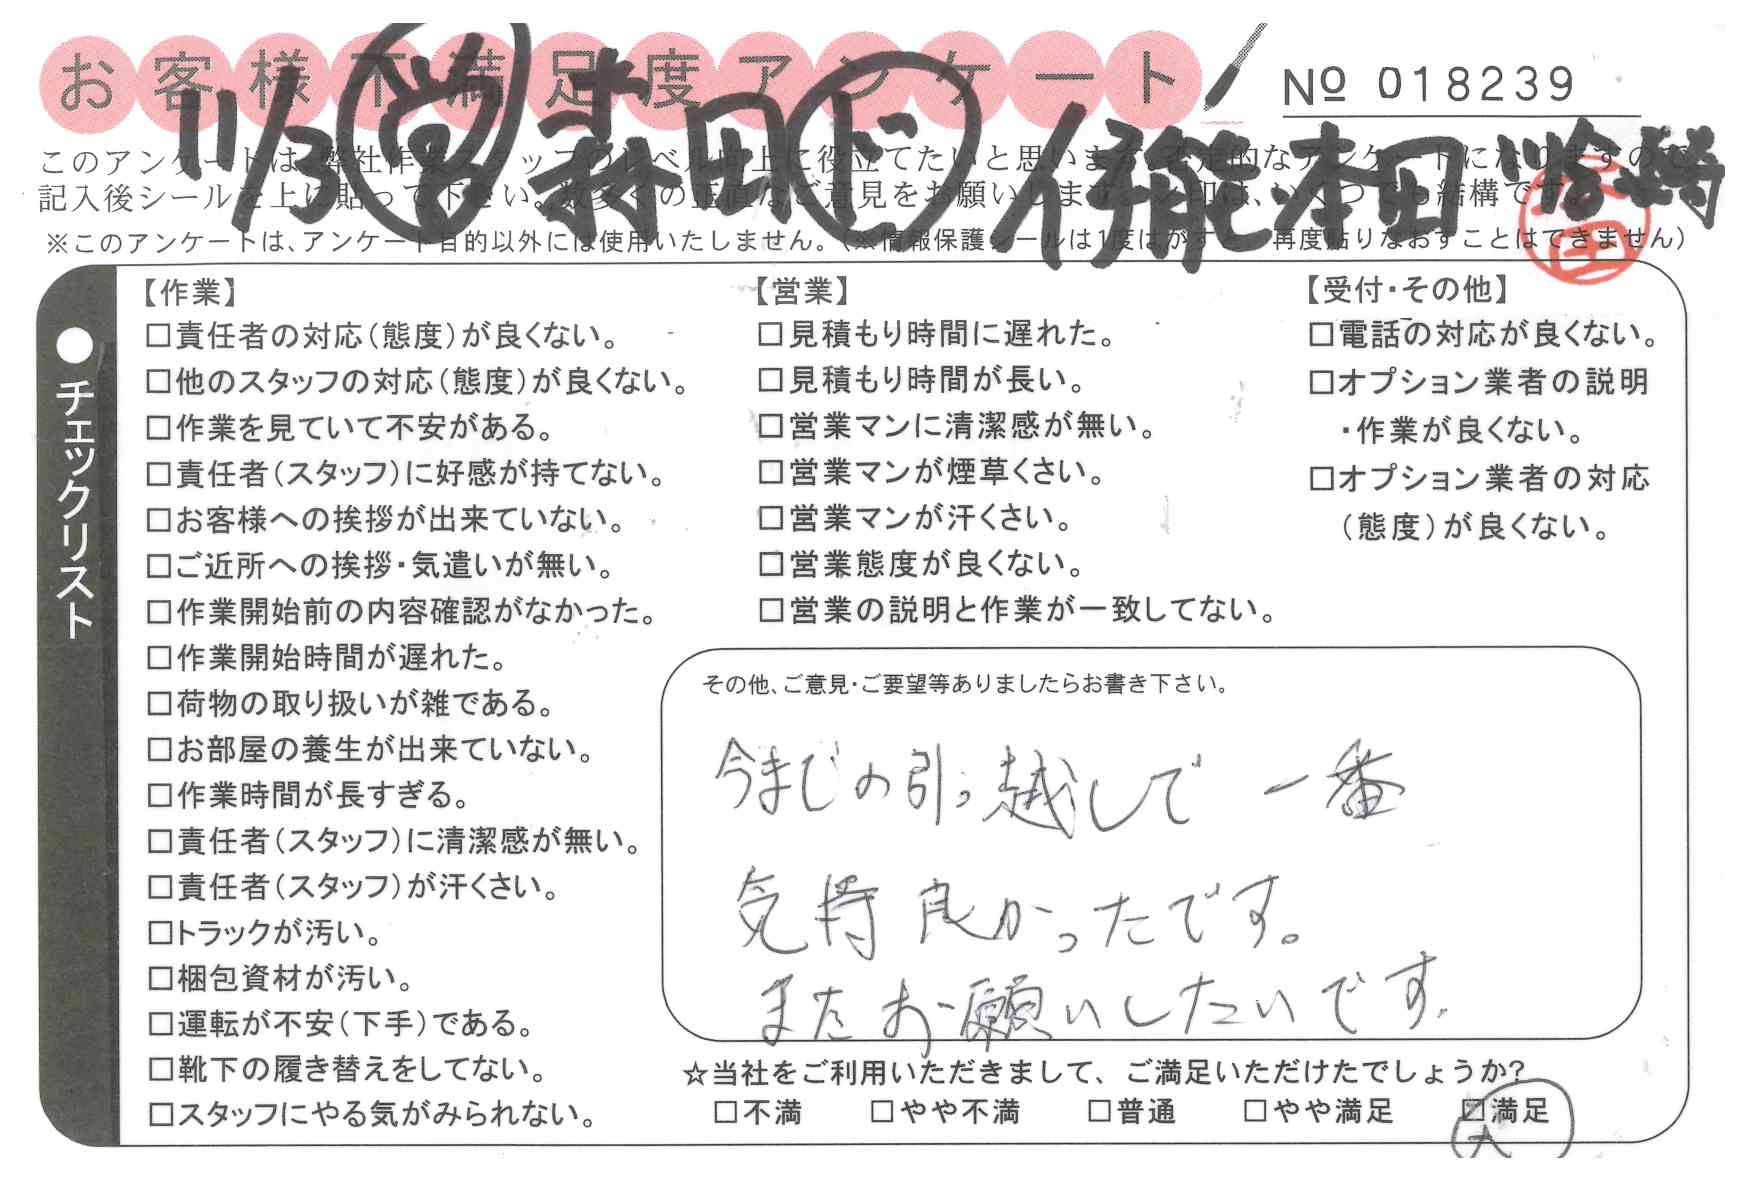 お客様不満足度アンケート
№ 018239
11/3 営 森田 ド 伊能 本田
このアンケートは、弊社作業スタッフのレベル向上に役立てたいと思います。否定的なアンケートになりますので、
記入後シールを上に貼って下さい。数多くの正直なご意見をお願いします。レ印は、いくつでも結構です。
※このアンケートは、アンケート目的以外には使用いたしません。(※情報保護シールは1度はがすと、再度貼りなおすことはできません)
●チェックリスト
【作業】
□責任者の対応(態度)が良くない。
□他のスタッフの対応(態度)が良くない。
□作業を見ていて不安がある。
□責任者(スタッフ)に好感が持てない。
□お客様への挨拶が出来ていない。
□ご近所への挨拶・気遣いが無い。
□作業開始前の内容確認がなかった。
□作業開始時間が遅れた。
□荷物の取り扱いが雑である。
□お部屋の養生が出来ていない。
□作業時間が長すぎる。
□責任者(スタッフ)に清潔感が無い。
□責任者(スタッフ)が汗くさい。
□トラックが汚い。
□梱包資材が汚い。
□運転が不安(下手)である。
□靴下の履き替えをしてない。
□スタッフにやる気がみられない。
【営業】
□見積もり時間に遅れた。
□見積もり時間が長い。
□営業マンに清潔感が無い。
□営業マンが煙草くさい。
□営業マンが汗くさい。
□営業態度が良くない。
□営業の説明と作業が一致してない。
【受付・その他】
□電話の対応が良くない。
□オプション業者の説明
・作業が良くない。
□オプション業者の対応
(態度)が良くない。
その他、ご意見・ご要望等ありましたらお書き下さい。
今までの引っ越しで一番
気持良かったです。
またお願いしたいです。
☆当社をご利用いただきまして、ご満足いただけたでしょうか?
□不満 □やや不満 □普通 □やや満足 ☑満足
大